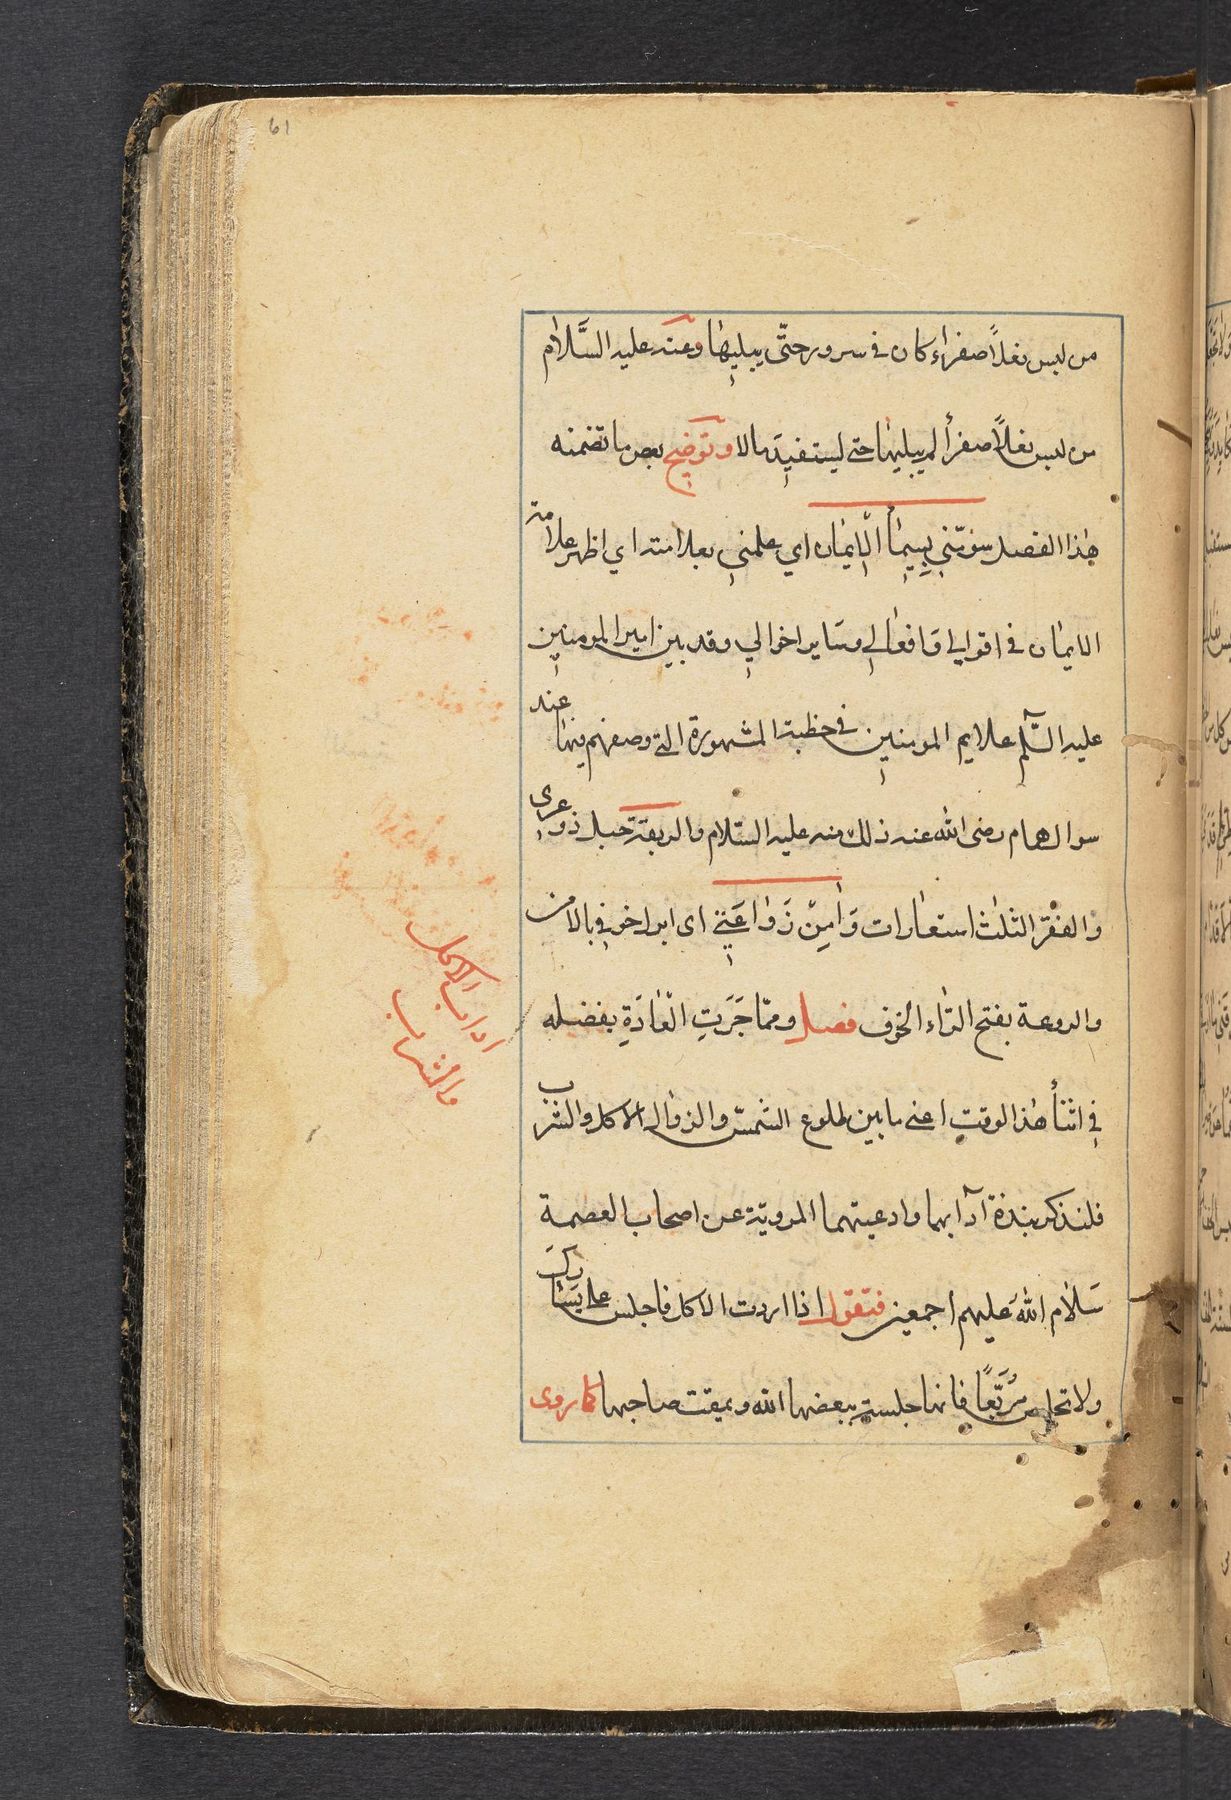 61
من لبس نعلاً صفراء كان في سرور حتّى يبليها وعنه عليه السَّلام
من لبس نعلاً صفراً لم يبليها حتى ليستفيد مالا وتوضيح بعض ما تضمنه
هٰذا الفصل سوّمني بسيماً الايمان اي علمني بعلامته اي اظهر علامة
الايمان في اقوالي وافعالي وساير احوالي وقد بين امير المومنين
عليه السّلم علايم المومنين في خطبة المشهورة التي وصفهم فيها عند
سوال همام رضى الله عنه ذلك منه عليه السّلام والربقة حبل ذو عرى
والفقر الثلث استعارات وَاٰمِنْ رَوْاعَتي اى ابدل خوفي بالامن
والروعة بفتح الرّاء الخوف فصل وممّا جَرَتِ الْعٰادَةِ بفضيله
في اثنأ هٰذا الوقت اعني ما بين طلوع الشمس والزوال الاكل والشرب
فلنذكر نبذة آدابهما وادعيتهما المرويّة عن اصحاب العصمة
سَلام الله عليهم اجمعين فتقول اذا اردت الاكل فاجلس على يسارك
ولا تجلس مُرَبَّعًا فانها جلسة يبغضها الله ويمقت صاحبها كما روى
اداب الاكل
والشراب